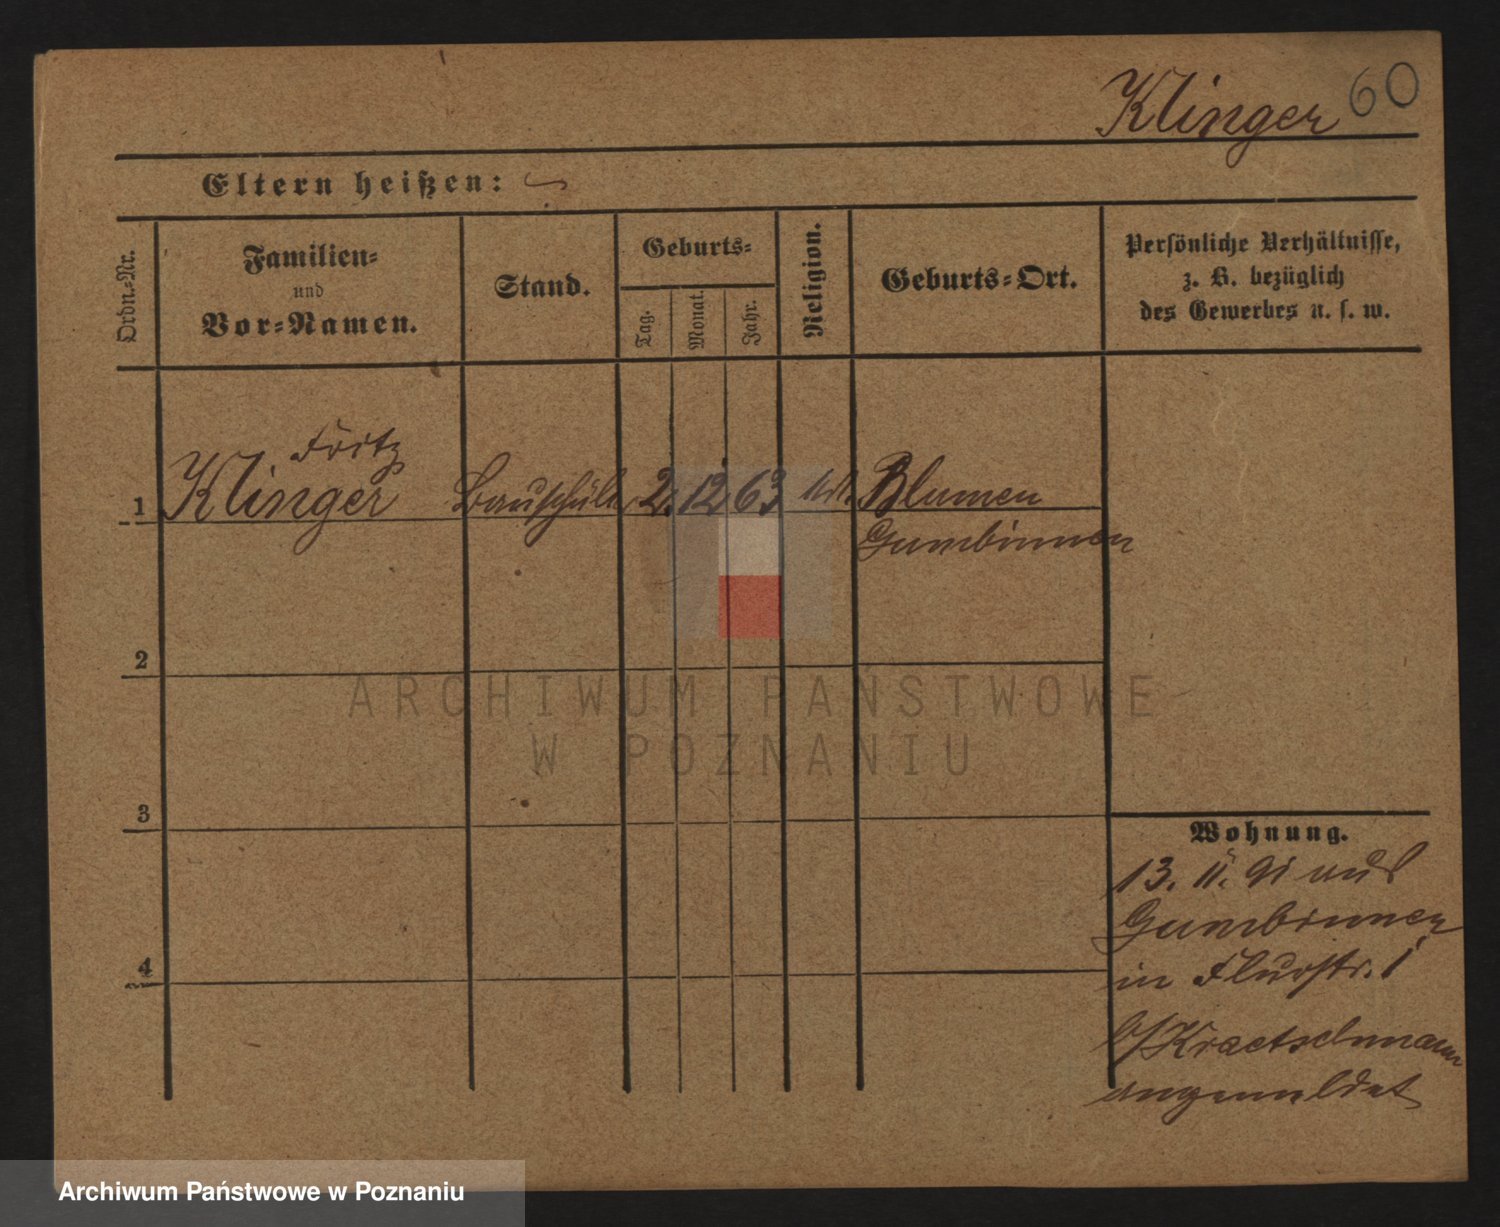 Klinger 60
Eltern heißen:
Ordn.-Nr.
Familien-
und
Vor-Namen.
Stand.
Geburts-
Tag.
Monat.
Jahr.
Religion.
Geburts-Ort.
Persönliche Verhältnisse,
z. B. bezüglich
des Gewerbes u. s. w.
Fritz
1 Klinger Bauschüler 2. 12 63 Blumen
Gumbinnen
2
ARCHIWUM PAŃSTWOWE
W POZNANIU
3
Wohnung.
13. 11. 91 aus
Gumbinnen
in Flurstr. 1
b/Kraetschmann
angemeldet
4
Archiwum Państwowe w Poznaniu